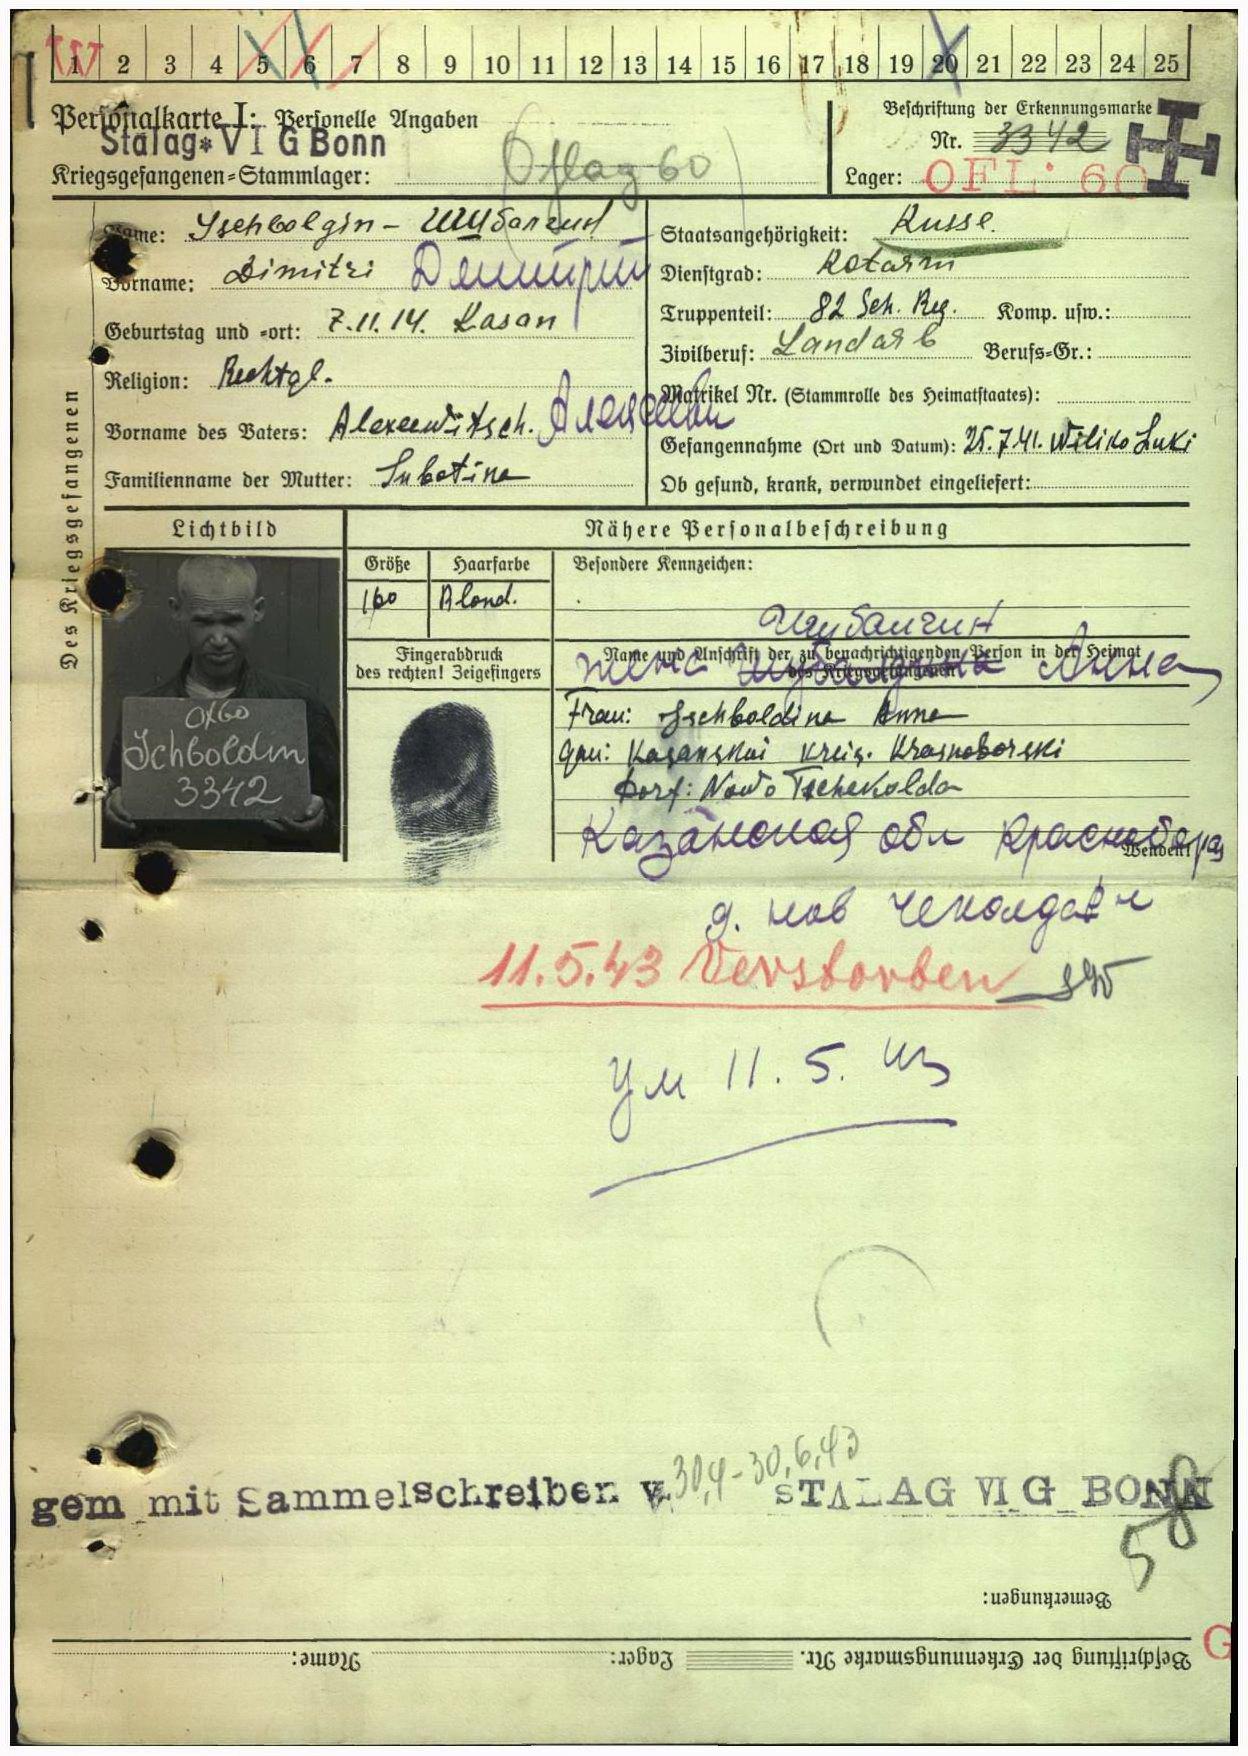 1 2 3 4 5 6 7 8 9 10 11 12 13 14 15 16 17 18 19 20 21 22 23 24 25
Personalkarte I: Personelle Angaben
Beschriftung der Erkennungsmarke
Stalag VI G Bonn
Oflag 60
Nr. 3342
Kriegsgefangenen=Stammlager:
Lager: OFL. 60
Des Kriegsgefangenen
Name: Ischbolgin - Ишбалгин
Staatsangehörigkeit: Russe.
Vorname: Dimitri Дмитрий
Dienstgrad: Rotarm
Truppenteil: 82 Sch. Reg. Komp. usw.:
Geburtstag und =ort: 7.11.14. Kasan
Zivilberuf: Landarb Berufs=Gr.:
Religion: Rechtgl.
Matrikel Nr. (Stammrolle des Heimatstaates):
Vorname des Vaters: Alexeewitsch.
Gefangennahme (Ort und Datum): 25.7.41. Wiliko Luki
Familienname der Mutter: Subotina
Ob gesund, krank, verwundet eingeliefert:
Lichtbild
Nähere Personalbeschreibung
Größe Haarfarbe Besondere Kennzeichen:
160 Blond.
Fingerabdruck
des rechten! Zeigefingers
Name und Anschrift der zu benachrichtigenden Person in der Heimat
des Kriegsgefangenen
жена Анна
OX60
Ischboldin
3342
Frau: Ischboldina Anna
Gou: Kasanskai Kreis. Krasnoborski
Dorf: Nowo Tschekolda
Казанская обл Краснобор
Wenden!
д. нов
11.5.43 Verstorben
Ум 11. 5. 43
gem mit Sammelschreiben v. 30.4-30.6.43 STALAG VI G BONN
58
Bemerkungen:
G
Beschriftung der Erkennungsmarke Nr. Lager: Name: